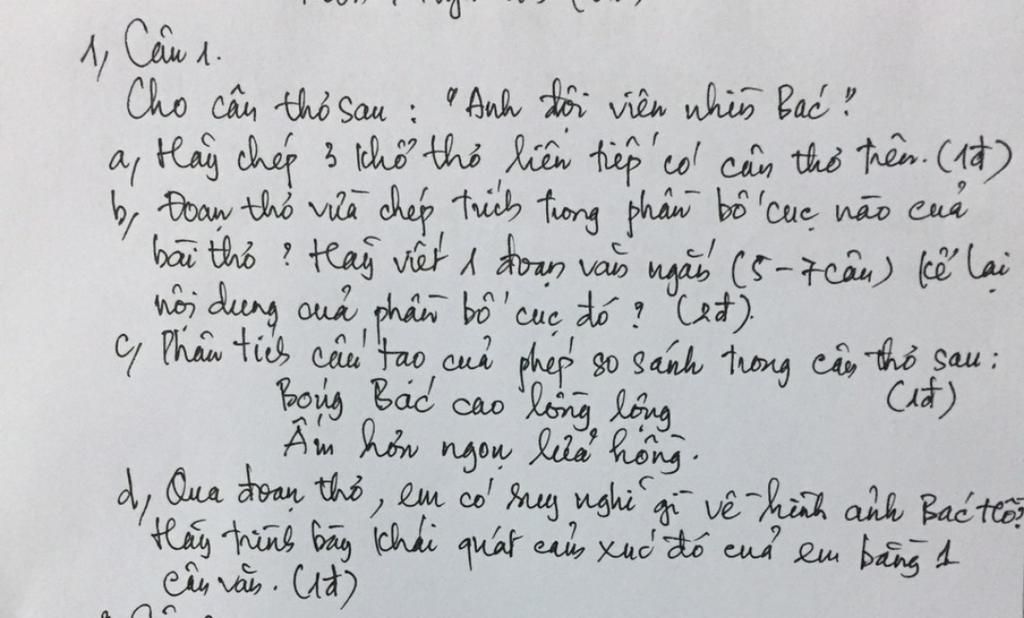 1, Câu 1.
Cho câu thơ sau : "Anh đội viên nhìn Bác"
a, Hãy chép 3 khổ thơ liên tiếp có câu thơ trên. (1đ)
b, Đoạn thơ vừa chép trích trong phần bố cục nào của
bài thơ ? Hãy viết 1 đoạn văn ngắn (5-7 câu) kể lại
nội dung của phần bố cục đó ? (2đ).
c, Phân tích cấu tạo của phép so sánh trong câu thơ sau :
(1đ)
Bóng Bác cao lồng lộng
Ấm hơn ngọn lửa hồng.
d, Qua đoạn thơ, em có suy nghĩ gì về hình ảnh Bác Hồ?
Hãy trình bày khái quát cảm xúc đó của em bằng 1
câu văn. (1đ)